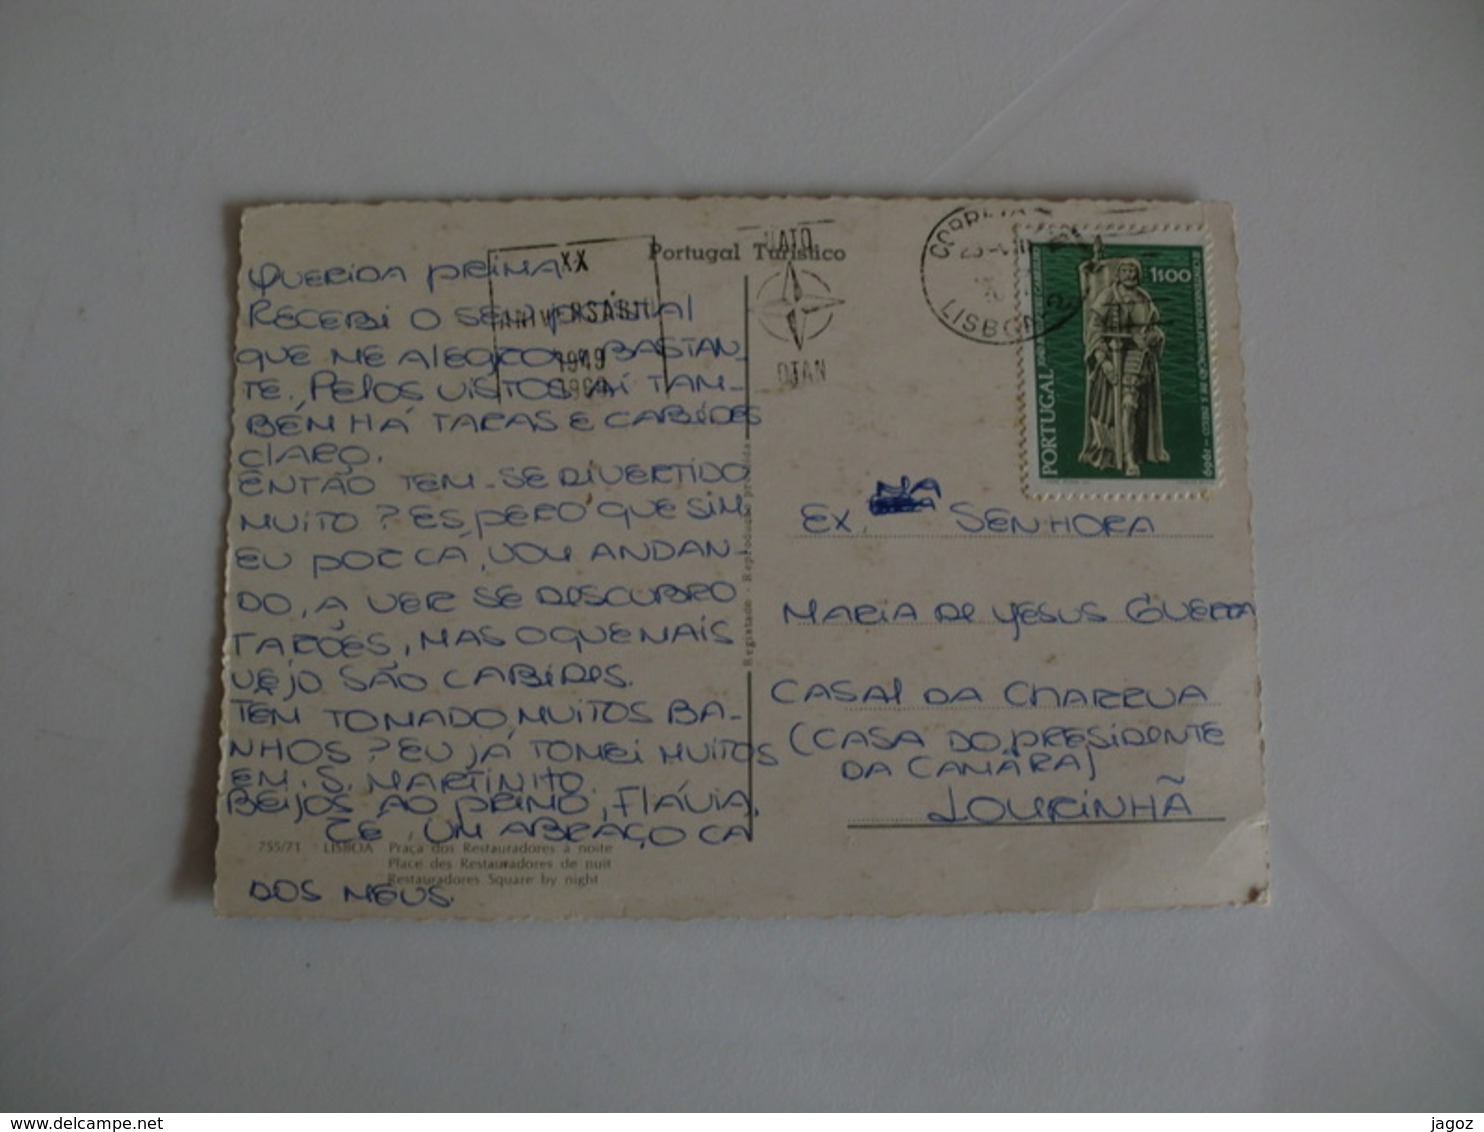 Portugal Turístico
XX
ANIVERSÁRIO
1949
1969
NATO
OTAN
CORREIA
LISBOA
1$00
PORTUGAL
1969
QUERIDA PRIMA
RECEBI O SEU POSTAL
QUE ME ALEGROU BASTAN-
TE. PELOS VISTOS AÍ TAM-
BÉM HÁ TARAS E CABIDES
CLARO.
ENTÃO TEM-SE DIVERTIDO
MUITO? ESPERO QUE SIM.
EU POR CÁ, VOU ANDAN-
DO, A VER SE DESCUBRO
TARÕES, MAS O QUE MAIS
VEJO SÃO CABIDES.
TEM TOMADO, MUITOS BA-
NHOS? EU JÁ TOMEI MUITOS
EM. S. MARTINITO.
BEIJOS AO PRIMO, FLÁVIA.
E, UM ABRAÇO CA
DOS MEUS.
755/71 LISBOA Praça dos Restauradores à noite
Place des Restauradores de nuit
Restauradores Square by night
Registado - Reprodução proibida
EX. MA SENHORA
MARIA DE YESUS GUERRA
CASAL DA CHARRUA
(CASA DO PRESIDENTE
DA CAMÁRA)
LOURINHÃ
jagoz